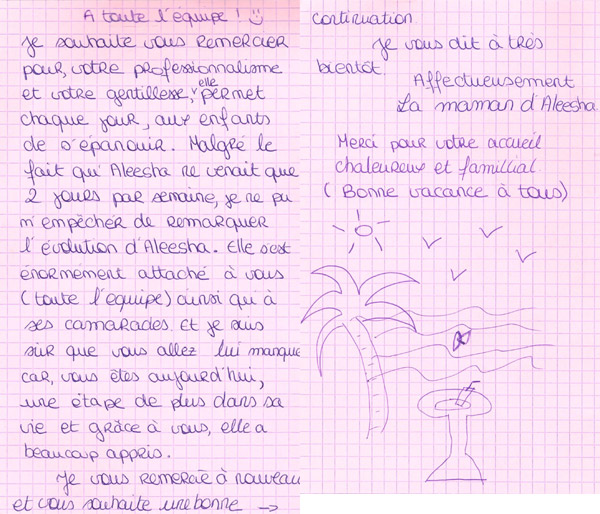 A toute l'équipe ! ☺
Je souhaite vous remercier
pour, votre professionnalisme
et votre gentillesse, elle permet
chaque jour, aux enfants
de s'épanouir. Malgré le
fait qu'Aleesha ne venait que
2 jours par semaine, je ne pu
m'empêcher de remarquer
l'évolution d'Aleesha. Elle s'est
énormément attaché à vous
(toute l'equipe) ainsi qu'à
ses camarades. Et je suis
sûr que vous allez lui manque
car, vous êtes aujourd'hui,
une étape de plus dans sa
vie et grâce à vous, elle a
beaucoup appris.
Je vous remercie à nouveau
et vous souhaite une bonne →
continuation
Je vous dit à très
bientôt.
Affectueusement
La maman d'Aleesha.
Merci pour votre accueil
chaleureux et famillial.
(Bonne vacance à tous)